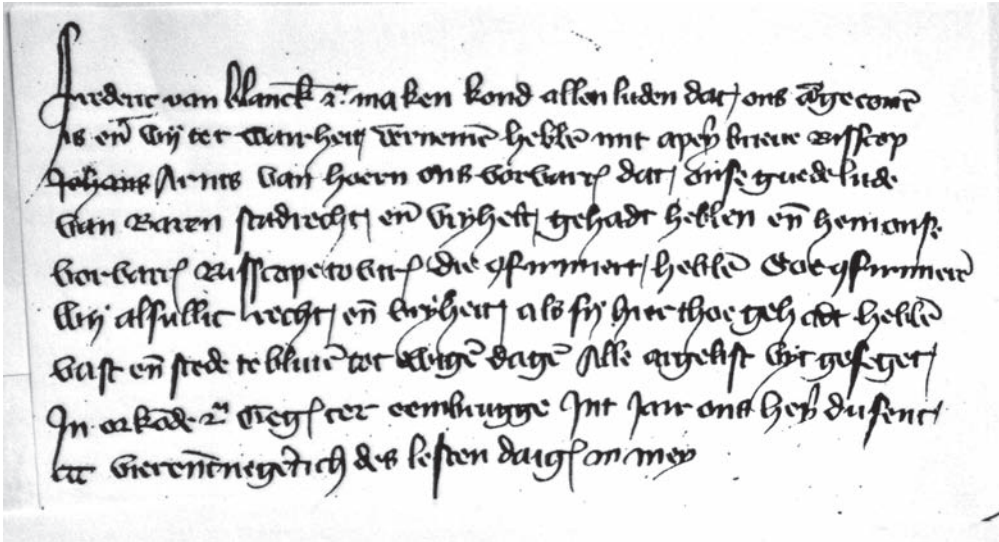 Frederic van Blanck etc. maken kond allen luden dat ons aengecomē
is eñ wij ter wairheit v'nemē hebbē mit apeñ brieve Bisscop
Johans Arnts van hoern ons vorvairs dat onse guede lude
van Baern stadrecht eñ vrijheit gehadt hebben eñ hem onse
vorvairs Bisscape tot die 9firmiert hebbē Soe 9firmierē
wij alsullic recht eñ vrijheit als sij hier thoe gehadt hebbē
vast eñ stede te blivē tot ewigē dagē Alle argelist wtgeseget
In orkōde etc. Gegē ter eembrugge Int jair ons heñ dusent
ccc vierenēnegētich des lesten dages in mey